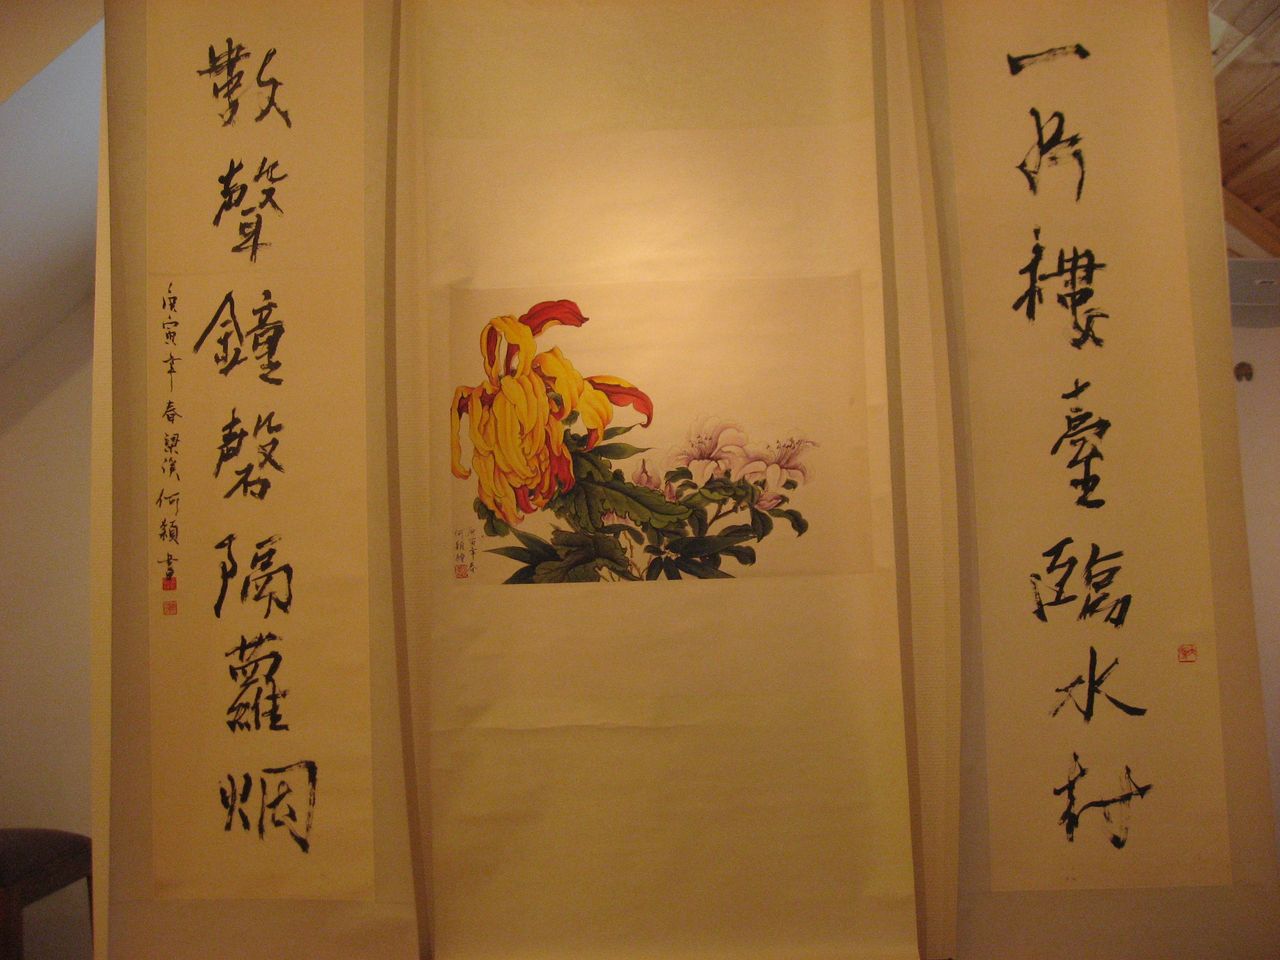 一片樓臺臨水村
庚寅年春
何穎繪
數聲鐘磬隔蘿烟
庚寅年春梁溪何穎書